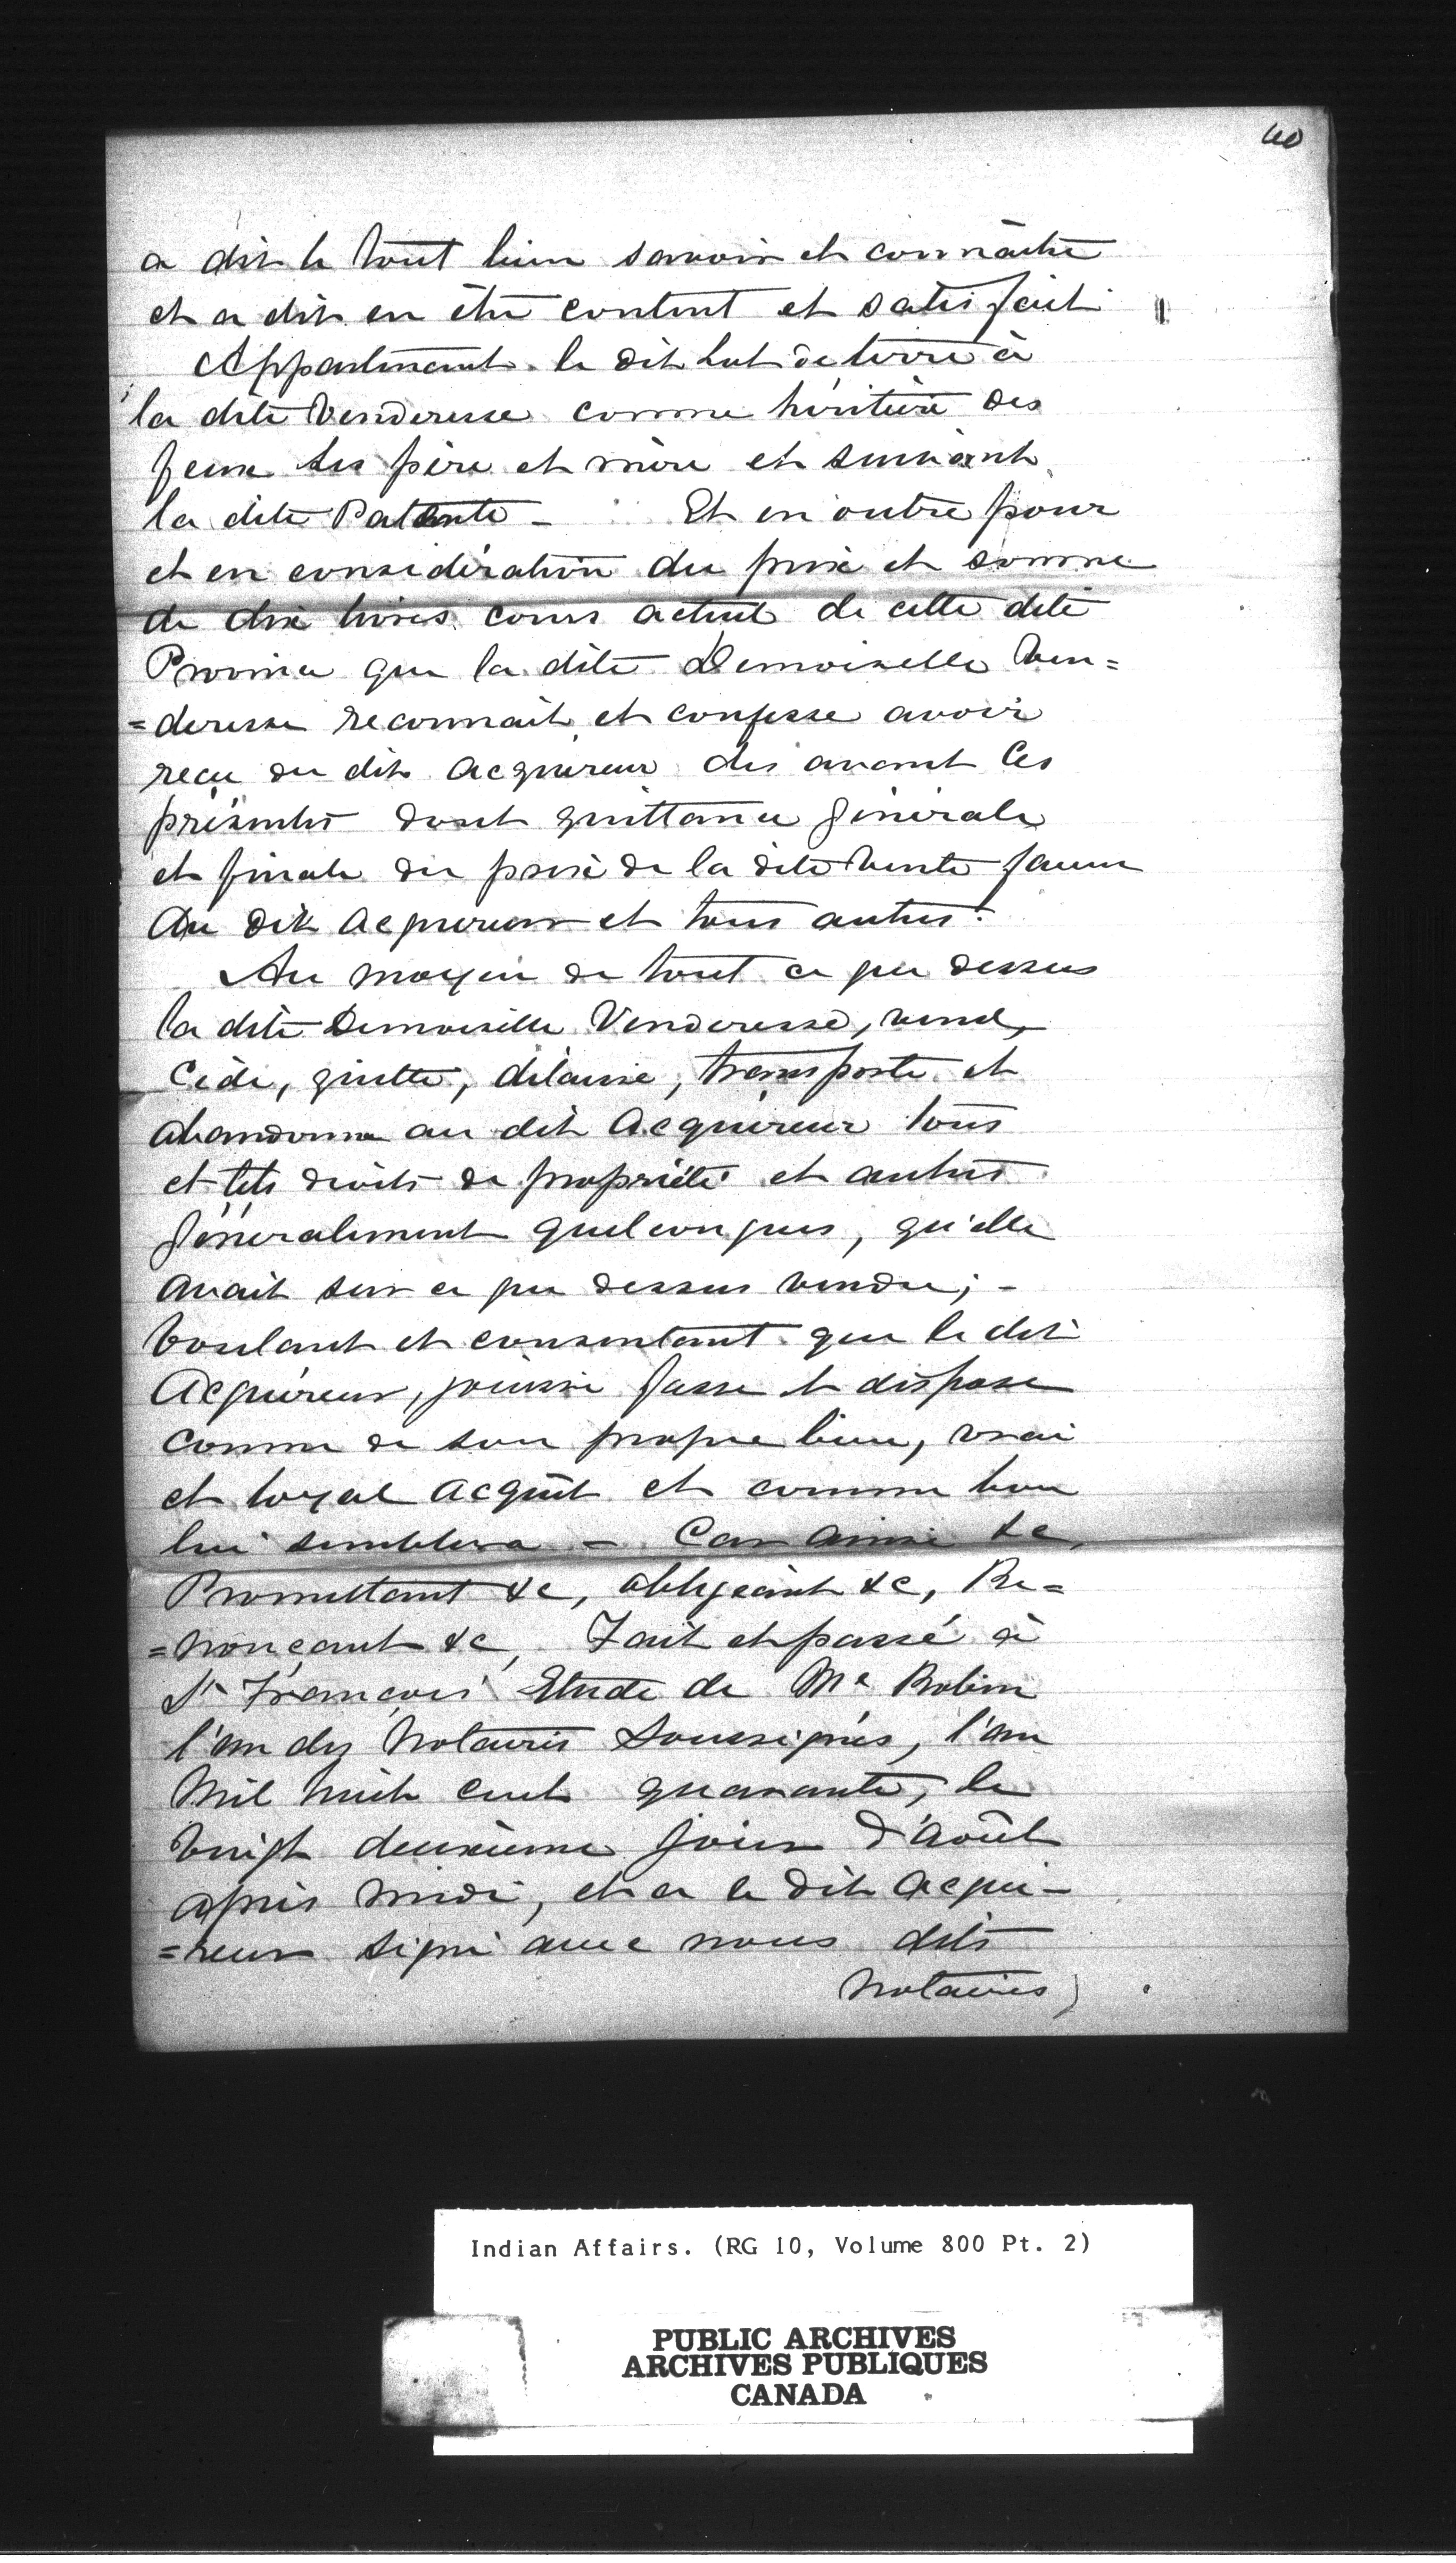 40
a dit le tout bien savoir et connaître
et a dit en être content et satisfait
Appartenant le dit Lot de terre à
la dite Venderesse comme héritière des
feux ses père et mère et suivant
la dite Patente - Et en outre pour
et en considération du prix et somme
de dix livres cours actuel de cette dite
Province que la dite Demoiselle Ven=
=deresse reconnait et confesse avoir
reçu du dit Acquéreur dès avant les
présentes dont quittance générale
et finale du prix de la dite vente
au dit acquereur et tous autres.
Au moyen de tout ce que dessus
la dite Demoiselle Venderesse, vend,
cède, quitte, délaisse, transporte et
abandonne au dit Acquéreur tous
et tels droits de propriété et autres
généralement quelconques, qu'elle
avait sur ce que dessus vendu; -
Voulant et consentant que le dit
Acquéreur, jouisse fasse et dispose
comme de son propre bien, vrai
et loyal acquêt et comme bon
lui semblera - Car ainsi &c,
Promettant &c, obligeant &c, Re=
=nonçant &c, Fait et passé à
St François Etude de Me Robin
l'un des Notaires Soussignés, l'an
Mil huit cent quarante, le
Vingt deuxième jour d'août
après midi, et a le dit acqué-
=reur signé avec nous dits
Notaires)
Indian Affairs. (RG 10, Volume 800 Pt. 2)
PUBLIC ARCHIVES
ARCHIVES PUBLIQUES
CANADA